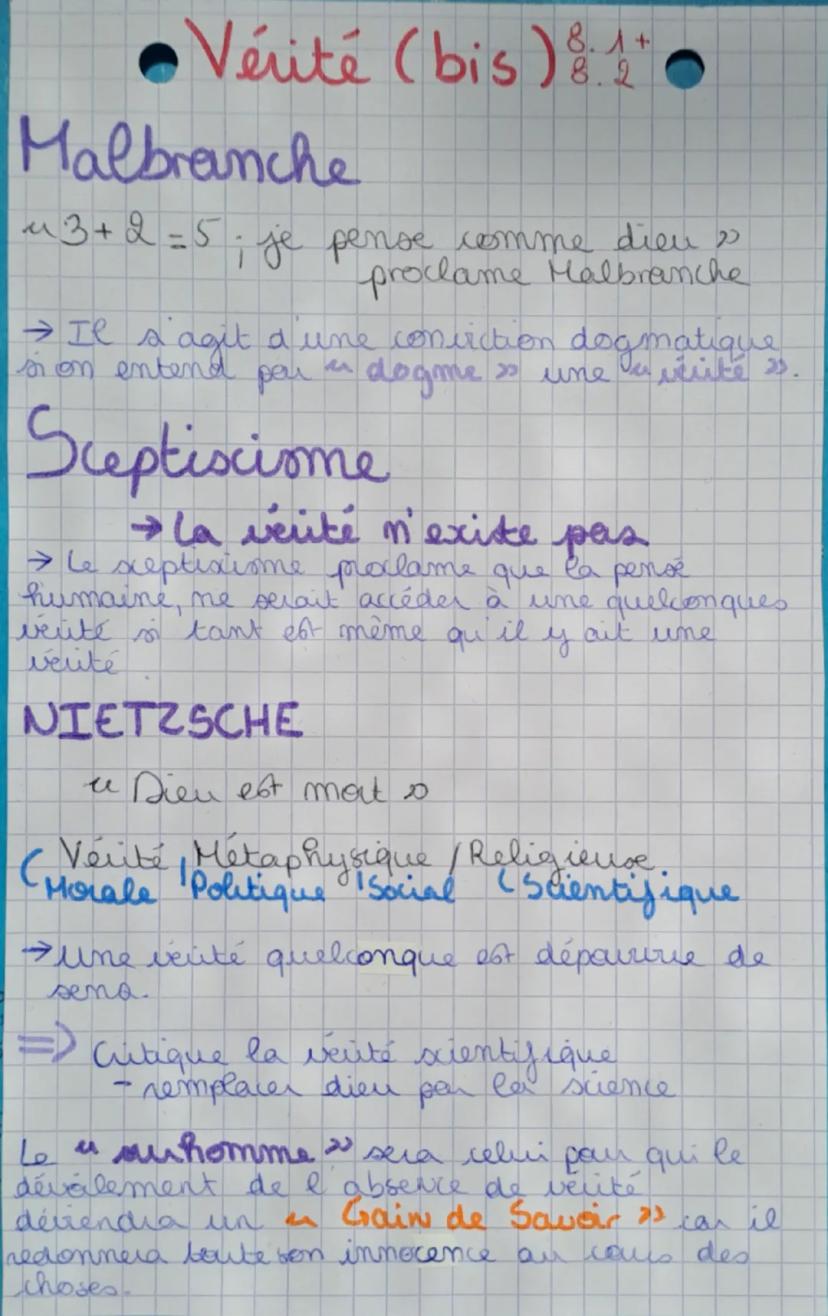 Vérité (bis) 8.1+
8.2
Malbranche
« 3+2=5 ; je pense comme dieu »
proclame Malbranche
→ Il s'agit d'une conviction dogmatique
si on entend par « dogme » une « vérité ».
Sceptiscisme
→ La vérité n'existe pas
→ Le sceptiscisme proclame que la pensé
humaine, ne serait accéder à une quelconques
vérité si tant est même qu'il y ait une
vérité
NIETZSCHE
« Dieu est mort »
Vérité, Métaphysique / Religieuse
(Morale Politique Social (Scientifique
→ Une vérité quelconque est dépourvue de
sens.
=> Critique la vérité scientifique
- remplacer dieu par la science
Le « surhomme » sera celui pour qui le
dévalement de l'absence de vérité
déviendra un « Gain de Savoir » car il
redonnera toute son innocence au cours des
choses.